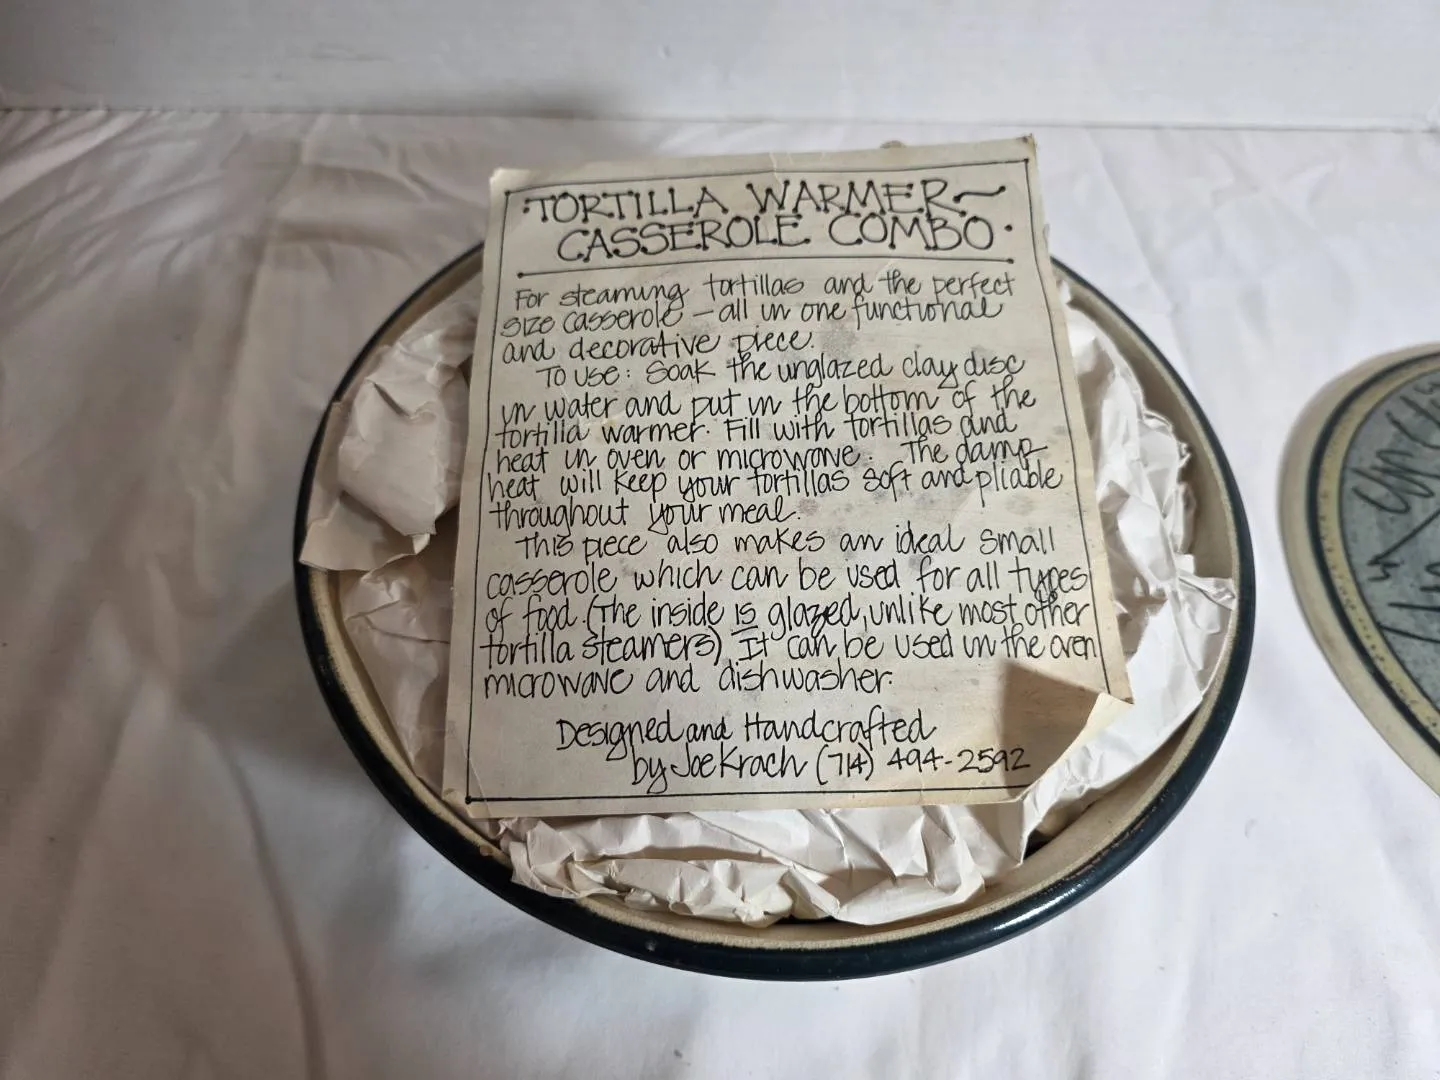 TORTILLA WARMER~
CASSEROLE COMBO.
For steaming tortillas and the perfect
size casserole — all in one functional
and decorative piece.
To use: Soak the unglazed clay disc
in water and put in the bottom of the
tortilla warmer. Fill with tortillas and
heat in oven or microwave. The damp
heat will keep your tortillas soft and pliable
throughout your meal.
This piece also makes an ideal small
casserole which can be used for all types
of food. (The inside is glazed, unlike most other
tortilla steamers) It can be used in the oven
microwave and dishwasher.
Designed and Handcrafted
by Joe Krach (714) 494-2592